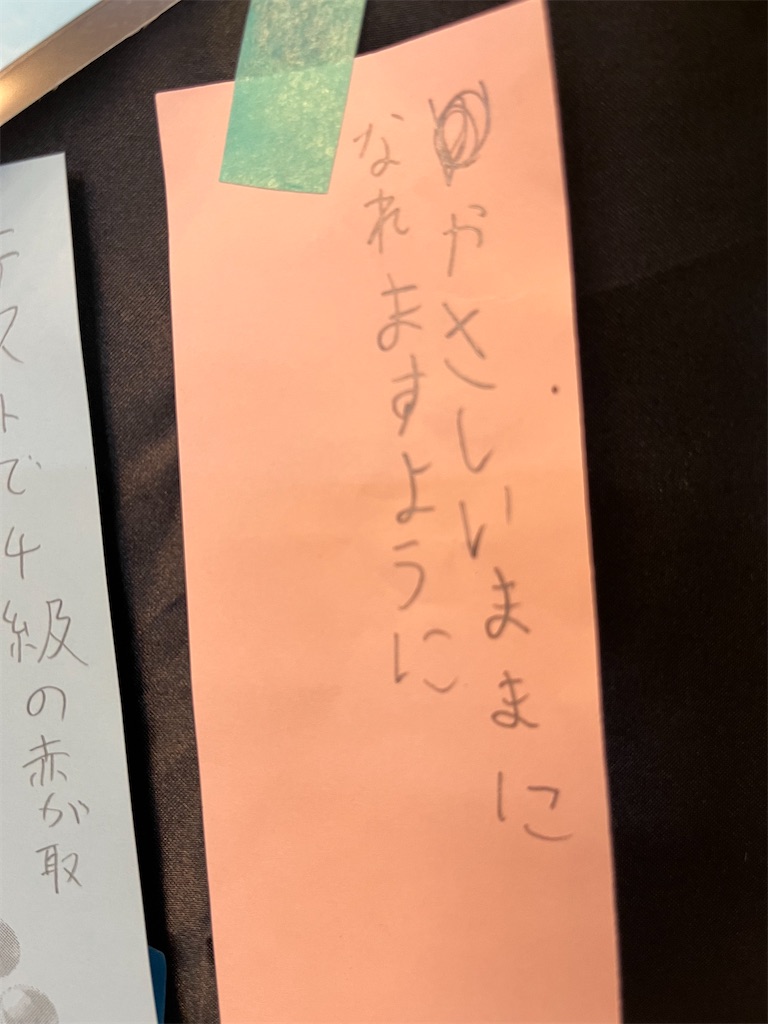 やさしいままに
なれますように
テストで4級の赤が取